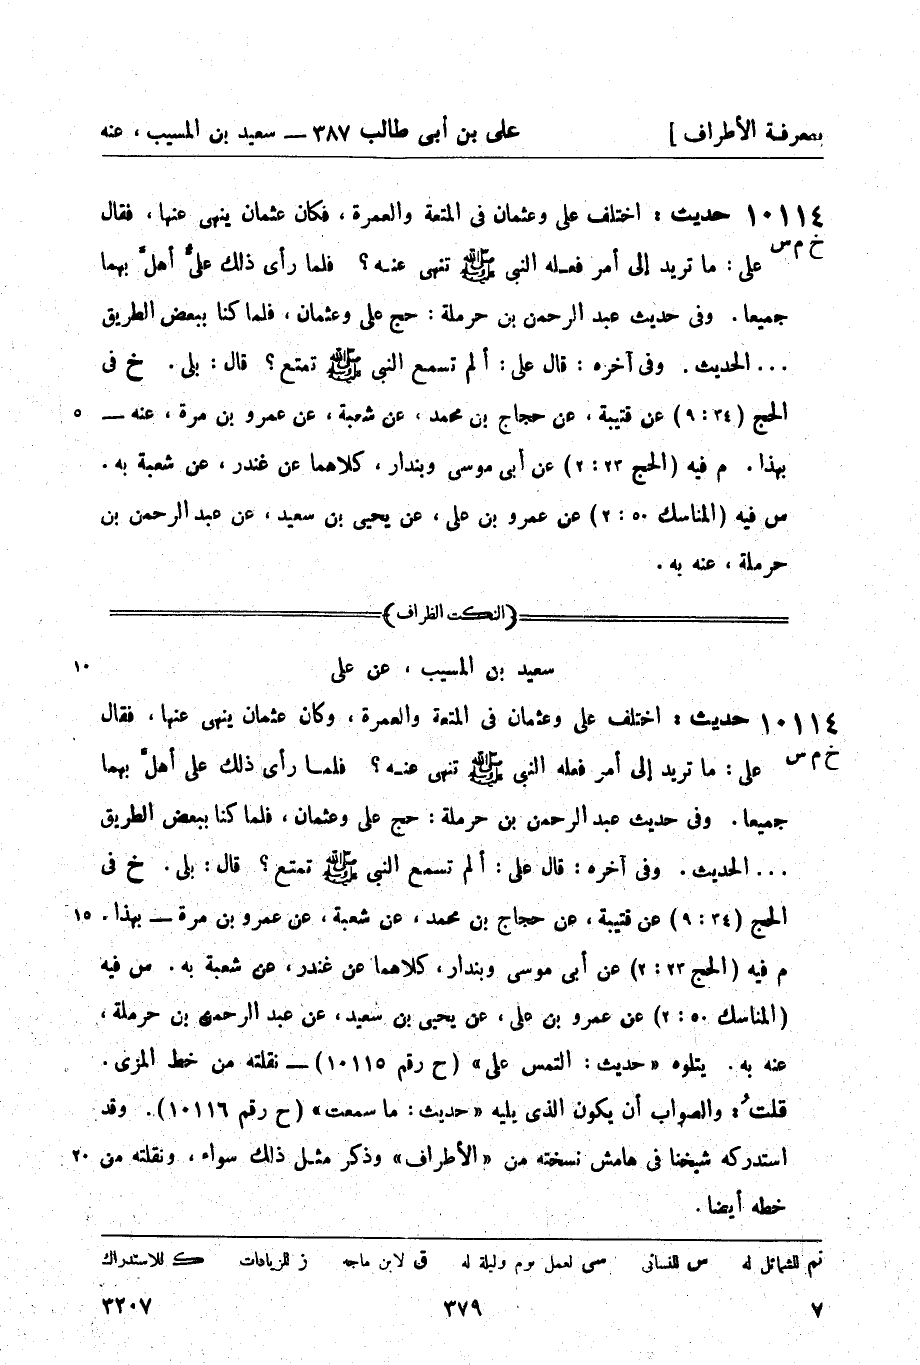 بمعرفة الأطراف ] على بن أبى طالب ٣٨٧ — سعيد بن المسيب ، عنه
١٠١١٤ حديث : اختلف على وعثمان فى المتعة والعمرة ، فكان عثمان ينهى عنها ، فقال
خ م س
على : ما تريد إلى أمر فعله النبى ﷺ تنهى عنه ؟ فلما رأى ذلك علىٌّ أهلَّ بهما
جميعا . وفى حديث عبد الرحمن بن حرملة : حج على وعثمان ، فلما كنا ببعض الطريق
... الحديث . وفى آخره : قال على : ألم تسمع النبى ﷺ تمتع ؟ قال : بلى . خ فى
الحج (٣٤ : ٩) عن قتيبة ، عن حجاج بن محمد ، عن شعبة ، عن عمرو بن مرة ، عنه — ٥
بهذا . م فيه (الحج ٢٣ : ٢) عن أبى موسى وبندار ، كلاهما عن غندر ، عن شعبة به .
س فيه (المناسك ٥٠ : ٢) عن عمرو بن على ، عن يحيى بن سعيد ، عن عبد الرحمن بن
حرملة ، عنه به .
(النكت الظراف)
سعيد بن المسيب ، عن على ١٠
١٠١١٤ حديث : اختلف على وعثمان فى المتعة والعمرة ، وكان عثمان ينهى عنها ، فقال
خ م س
على : ما تريد إلى أمر فعله النبى ﷺ تنهى عنه ؟ فلما رأى ذلك على أهلَّ بهما
جميعا . وفى حديث عبد الرحمن بن حرملة : حج على وعثمان ، فلما كنا ببعض الطريق
... الحديث . وفى آخره : قال على : ألم تسمع النبى ﷺ تمتع ؟ قال : بلى . خ فى
الحج (٣٤ : ٩) عن قتيبة ، عن حجاج بن محمد ، عن شعبة ، عن عمرو بن مرة — بهذا . ١٥
م فيه (الحج ٢٣ : ٢) عن أبى موسى وبندار ، كلاهما عن غندر ، عن شعبة به . س فيه
(المناسك ٥٠ : ٢) عن عمرو بن على ، عن يحيى بن سعيد ، عن عبد الرحمن بن حرملة ،
عنه به . يتلوه «حديث : التمس على» (ح رقم ١٠١١٥) — نقلته من خط المزى .
قلتُ : والصواب أن يكون الذى يليه «حديث : ما سمعت» (ح رقم ١٠١١٦) . وقد
استدركه شيخنا فى هامش نسخته من «الأطراف» وذكر مثل ذلك سواء ، ونقلته من ٢٠
خطه أيضا .
تم للشمائل له س للنسائى سى لعمل يوم وليلة له ق لابن ماجه ز للزيادات ك للاستدراك
٧ ٣٧٩ ٣٢٠٧